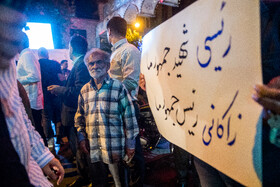 رئیسی شهید جمهور
زاکانی رئیس جمهور